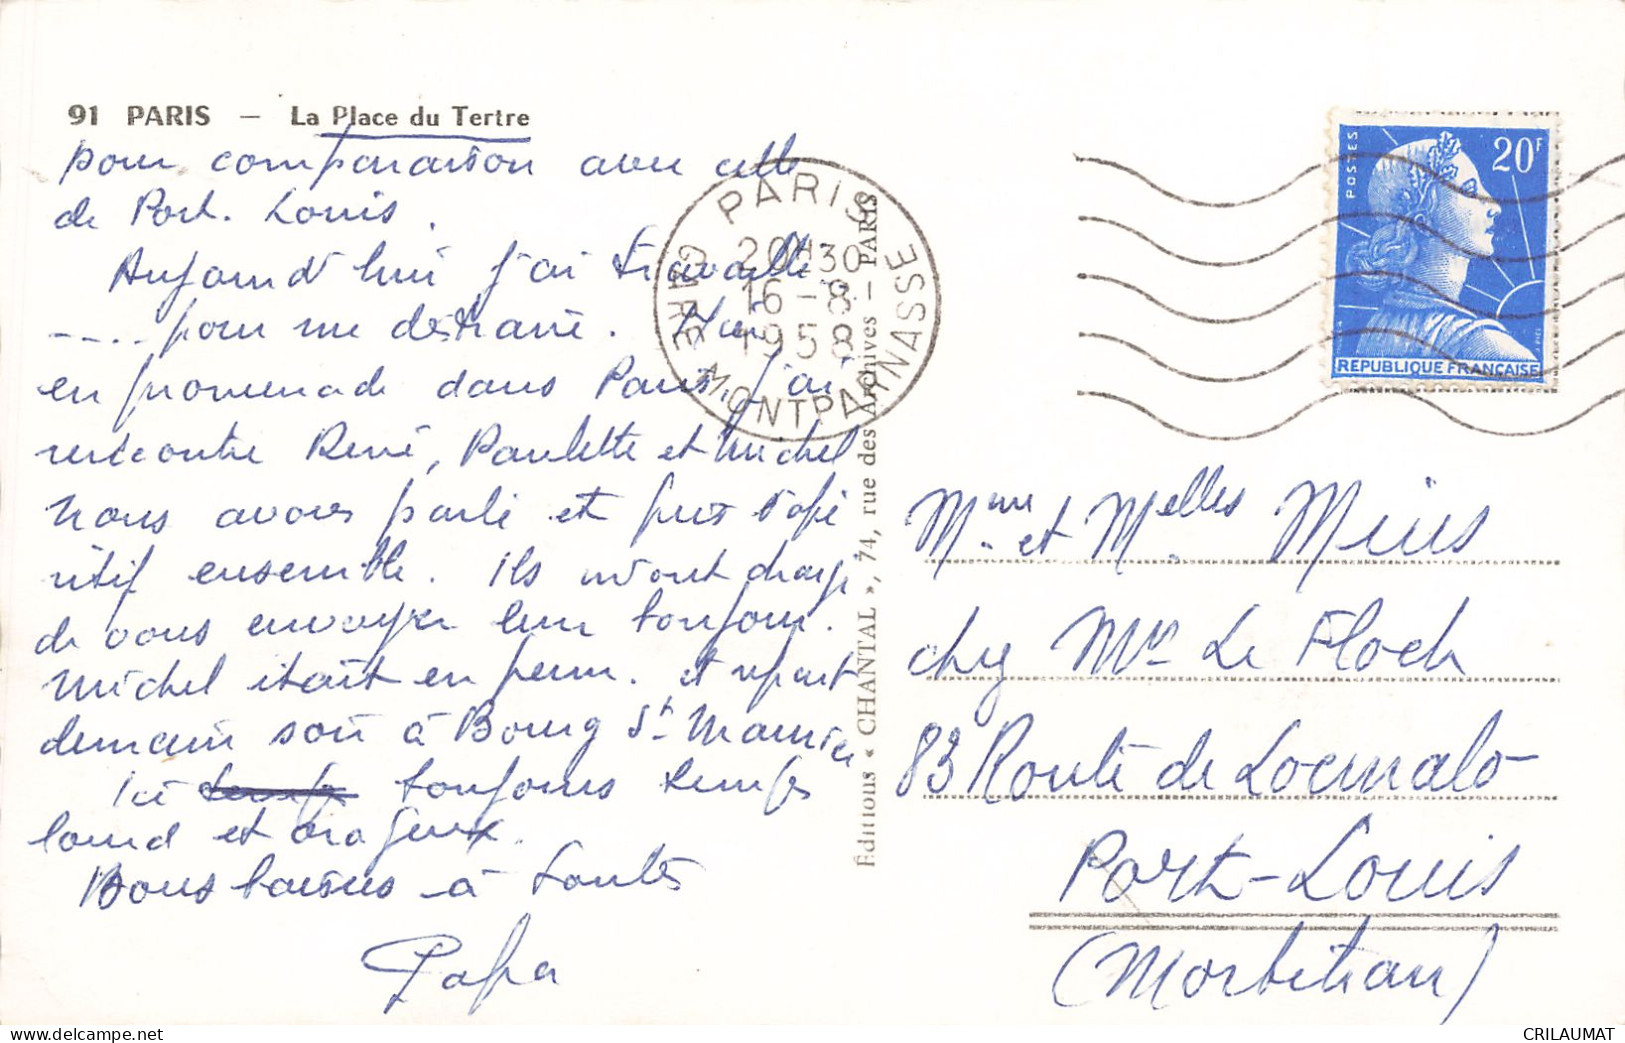 91 PARIS — La Place du Tertre
pour comparaison avec celle
de Port. Louis.
Aujourd'hui j'ai travaillé
---.. pour me distraire. Hier
en promenade dans Paris, j'ai
rencontré René, Paulette et Michel
Nous avons parlé et pris l'apé
ritif ensemble. Ils m'ont chargé
de vous envoyer leur bonjour.
Michel était en perm. et repart
demain soir à Bourg St Maurice
Ici temps toujours temps
lourd et orageux.
Bons baisers à toutes
Papa
PARIS
GARE MONTPARNASSE
20H30
16-8-
1958
Éditions « CHANTAL », 74, rue des Archives - PARIS
POSTES
20F
REPUBLIQUE FRANÇAISE
Mme. et Melles. Mius
chez Mr Le Floch
83 Route de Locmalo
Port-Louis
(Morbihan)
CRILAUMAT